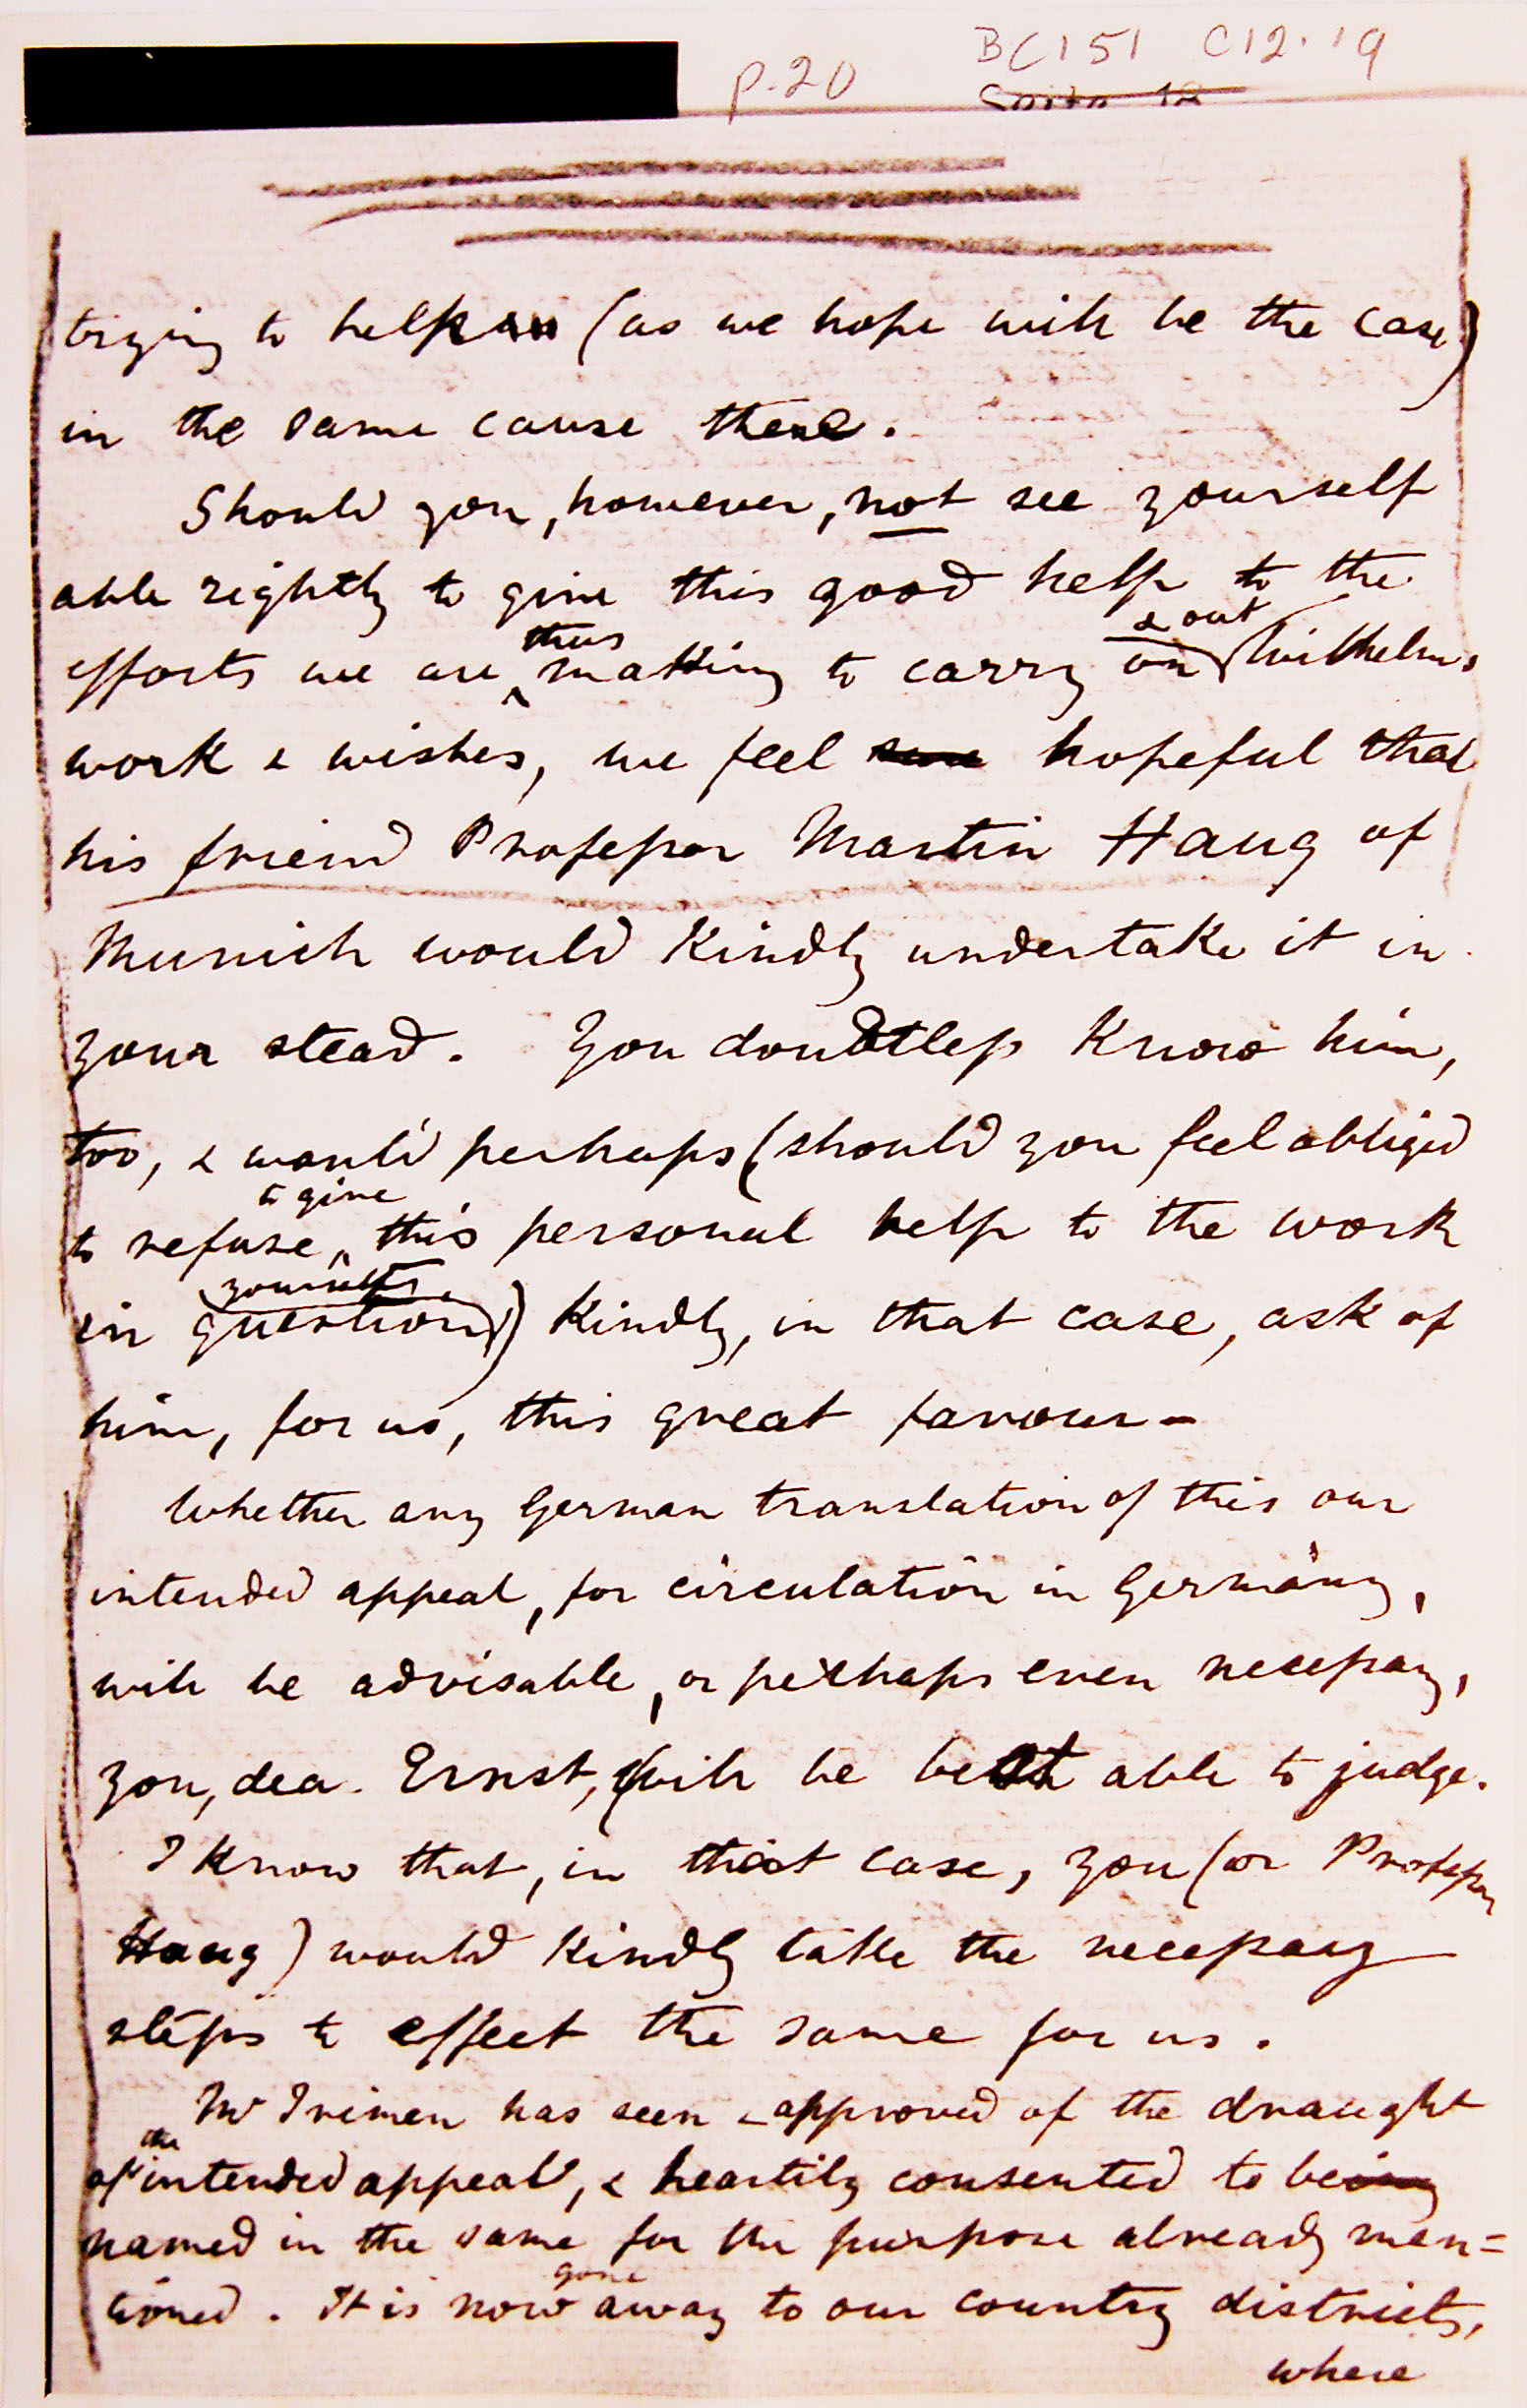 p. 20 BC151 C12.19
trying to help (as we hope will be the case)
in the same cause there.
Should you, however, not see yourself
able rightly to give this good help to the
thus & out
efforts we are making to carry on Wilhelm's
work & wishes, we feel sure hopeful that
his friend Professor Martin Haug of
Munich would kindly undertake it in
your stead. You doubtless know him,
too, & would perhaps (should you feel obliged
to give
to refuse this personal help to the work
yourself
in question) kindly, in that case, ask of
him, for us, this great favour -
Whether any German translation of this our
intended appeal, for circulation in Germany,
will be advisable, or perhaps even necessary,
you, dear Ernst, will be best able to judge.
I know that, in that case, you (or Professor
Haug) would kindly take the necessary
steps to effect the same for us.
Mr Trimen has seen & approved of the draught
the
of intended appeal, & heartily consented to being
named in the same for the purpose already men=
gone
tioned. It is now away to our country districts,
where